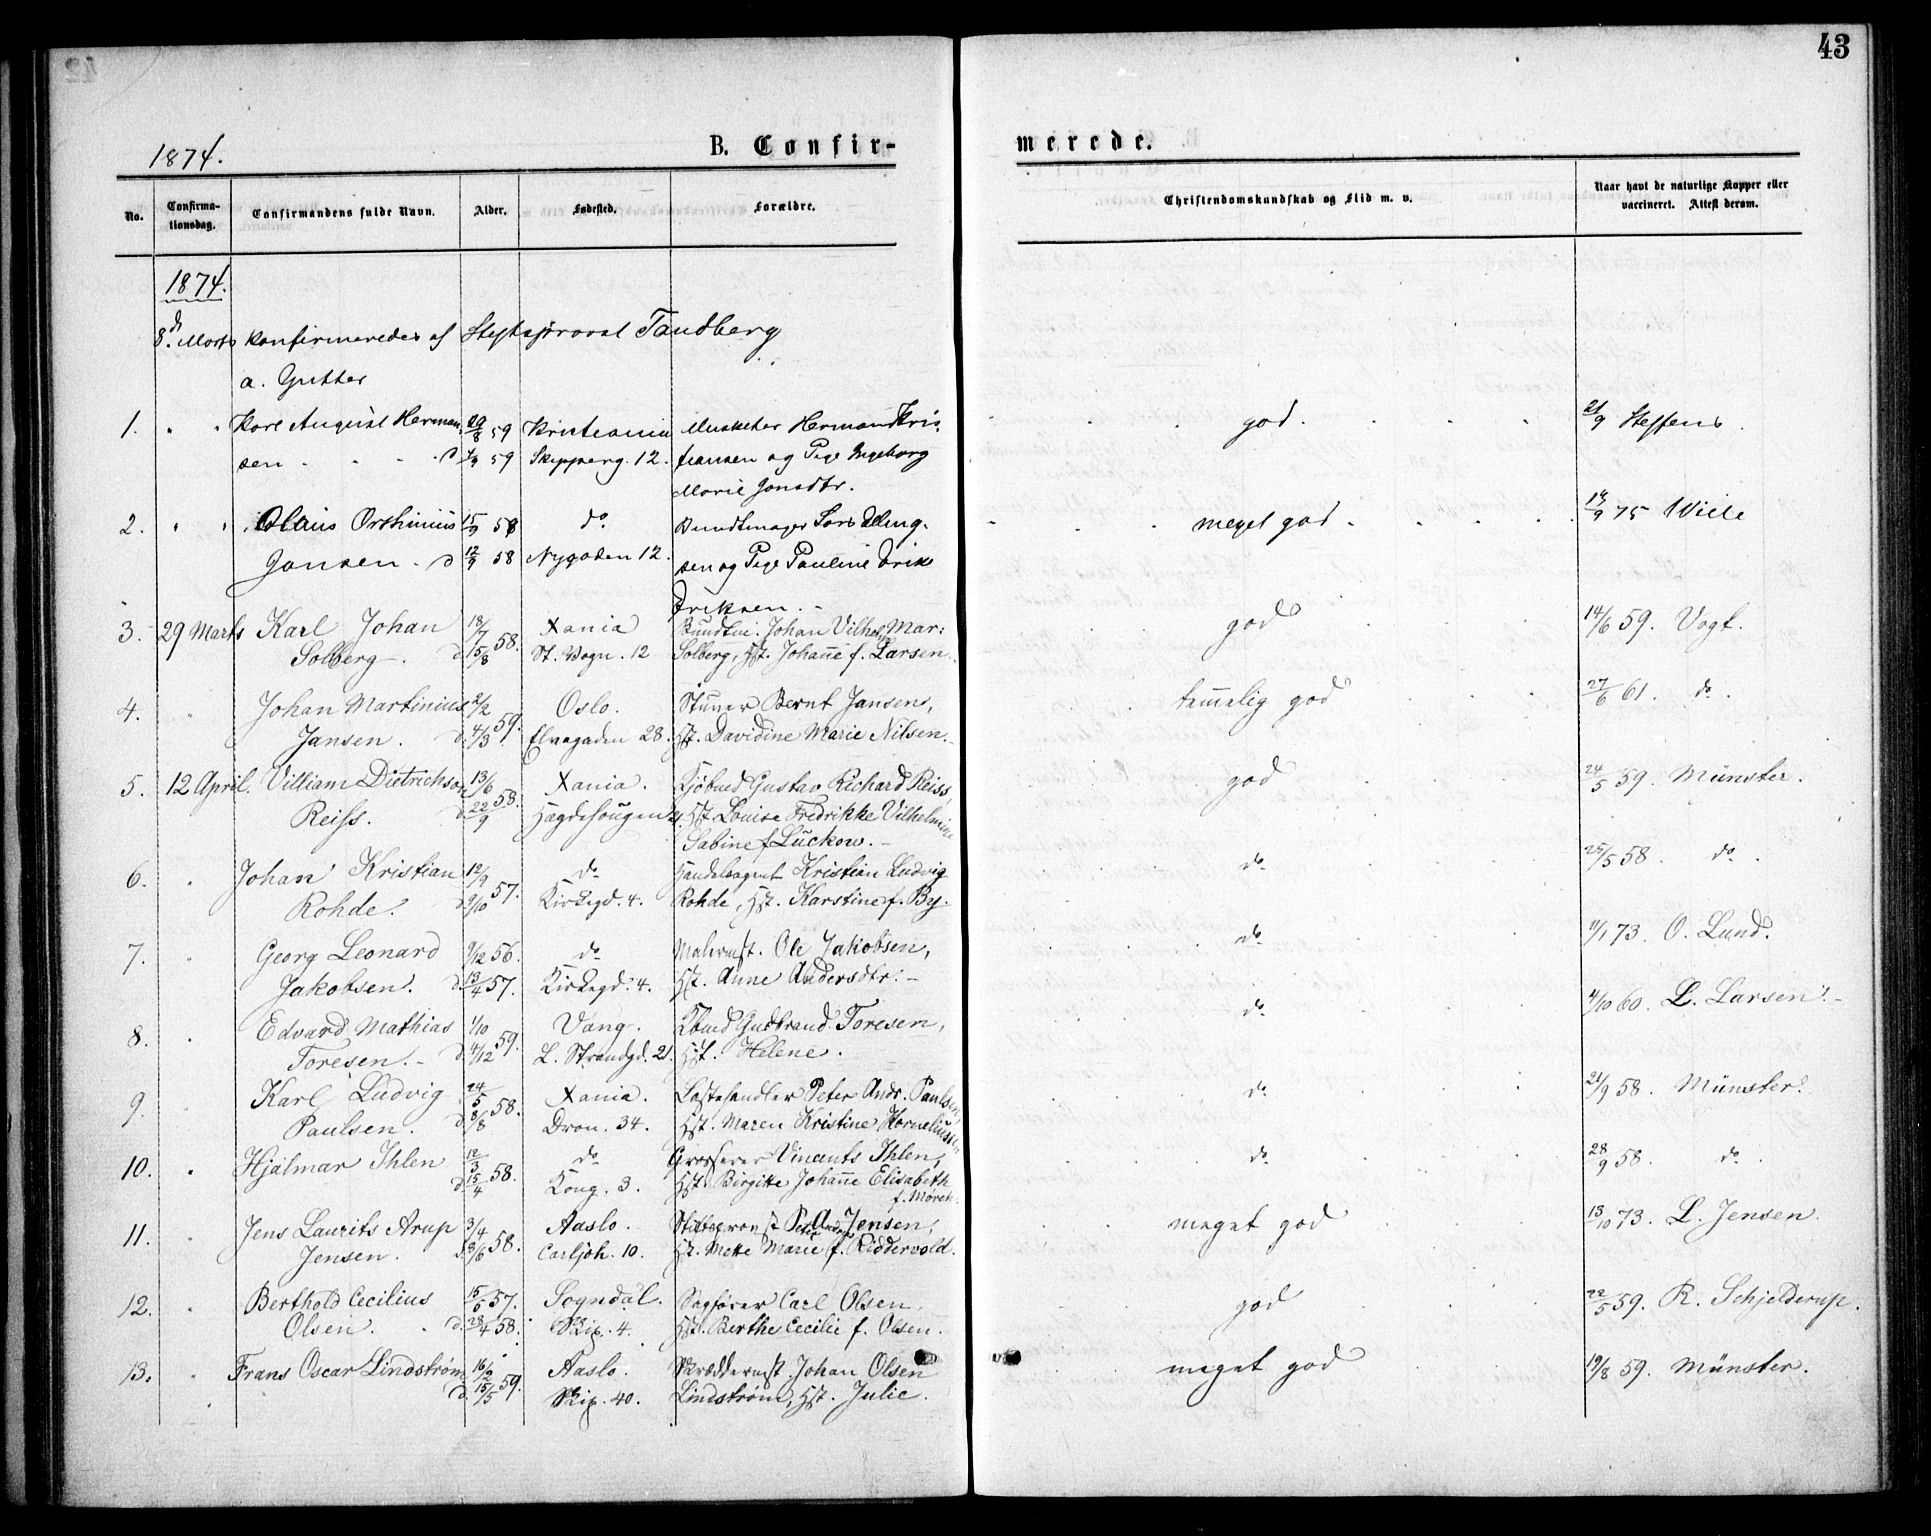 43
1874.
B. Confir-
merede.
No.
Confirma-
tionsdag.
Confirmandens fulde Navn.
Alder.
Fødested.
Forældre.
Christendomskundskab og Flid m. v.
Naar havt de naturlige Kopper eller
vaccineret. Attest derom.
1874.
8de Marts konfirmeredes af Stiftsprovst Tandberg
a. Gutter
1. " " Karl August Herman- 20/8 59 Kristiania Musketer Herman Kris- god. 21/9 Steffens.
sen d 4/9 59 Skipperg. 12. tiansen og Pige Ingeborg
Marie Jonsdtr.
2. " " Olaus Orthinius 15/9 58 do Bundtmager Lars Elling- meget god 14/9 75 Wiele
Jansen. d 12/9 58 Nygaden 12. sen og Pige Pauline Erik
Eriksen.
3. 29 Marts Karl Johan 18/7 58. Xania Bundtm. Johan Vilhelm Mar: god 14/6 59. Vogt.
Solberg. d. 15/8 St. Vogn. 12 Solberg, Hst. Johanne f. Larsen.
4. " Johan Martinius 2/2 59. Oslo. Stuver Bernt Jansen, temmelig god 27/6 61. do.
Jansen. d. 4/3 Elvegaden 28. Hst. Davidine Marie Nilsen.
5. 12 April. Villiam Dietrichson 13/6 58. Xania. Kjøbmd Gustav Richard Reiss, god 24/5 59. Münster.
Reiss. d. 22/9 Hægdehougen 21. Hst. Louise Fredrikke Vilhelmine
Sabine f. Lückow.
6. " Johan Kristian 12/9 57. do Handelsagent Kristian Ludvig do 25/5 58. do.
Rohde. d. 9/10 Kirkegd. 4. Rohde, Hst. Karstine f. By.
7. " Georg Leonard 9/12 56. do Malermst. Ole Jakobsen, do 11/1 73. O. Lund.
Jakobsen. d. 13/4 57. Kirkegd. 4. Hst. Anne Andersdtr.
8. " Edvard Mathias 1/10 59. Vang. Kbmd Gudbrand Toresen, do 4/10 60. L. Larsen.
Toresen. d. 4/12 L. Strandgd. 21. Hst. Helene.
9. " Karl Ludvig 24/5 58. Xania. Lastehandler Peter Andr. Paulsen, do 21/9 58. Münster.
Paulsen. d. 8/8 Dron. 34. Hst. Maren Kristine Korneliussen
10. " Hjalmar Ihlen 12/3 58. do Grosserer Vincents Ihlen, do 28/9 58. do.
d. 15/4 Kong. 3. Hst. Birgitte Johanne Elisabeth
f. Mørch.
11. " Jens Laurits Arup 3/4 58. Aaslo. Stiftsprovst P. A. Jensen, meget god 13/10 73. L. Jensen.
Jensen. d. 9/6 Carljoh. 10. Hst. Mette Marie f. Riddervold.
12. " Berthold Cecilius 15/5 57. Sogndal. Sagfører Carl Olsen, god 22/5 59. R. Schjelderup.
Olsen. d. 28/4 58. Skip. 4. Hst. Berthe Cecilie f. Olsen.
13. " Frans Oscar Lindstrøm 16/2 59. Aaslo. Skræddermst. Johan Olsen meget god 19/8 59. Münster.
d. 15/5 Skip. 40. Lindstrøm, Hst. Julie.